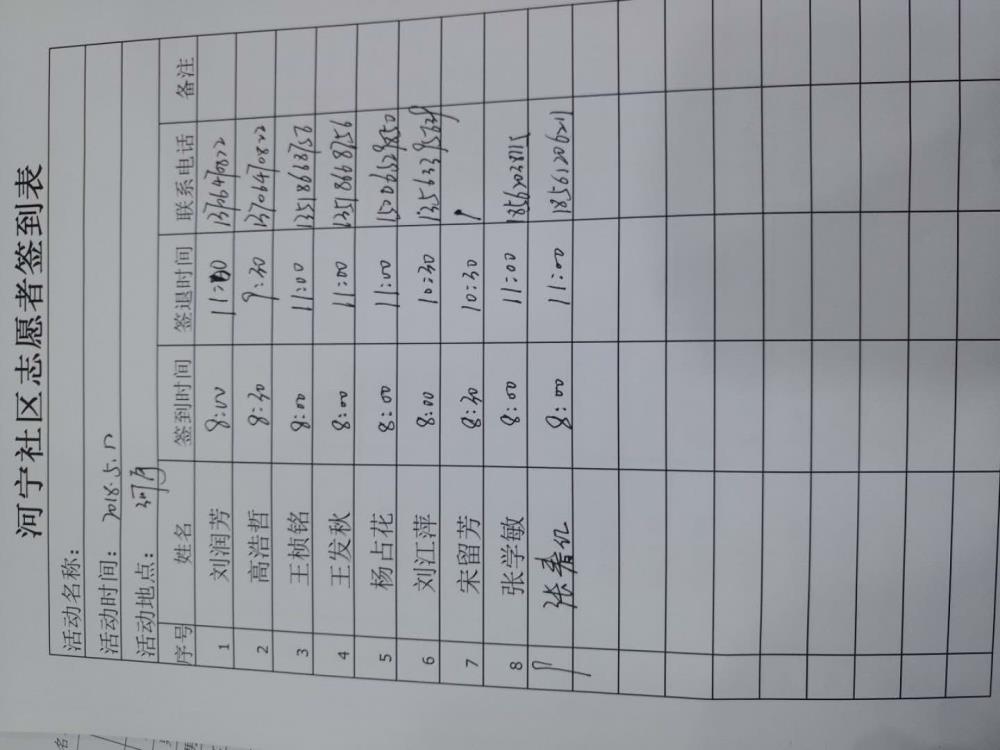 河宁社区志愿者签到表
活动名称：
活动时间：2018.5.17
活动地点：河宁
序号 姓名 签到时间 签退时间 联系电话 备注
1 刘润芳 8:00 11:00 13706470822
2 高浩哲 8:30 9:30 13706470822
3 王桢铭 8:00 11:00 13518668756
4 王发秋 8:00 11:00 13518668756
5 杨占花 8:00 11:00 15006529850
6 刘江萍 8:00 10:30 13563395629
7 宋留芳 8:30 10:30
8 张学敏 8:00 11:00 18562028115
9 张春 8:00 11:00 18561206211